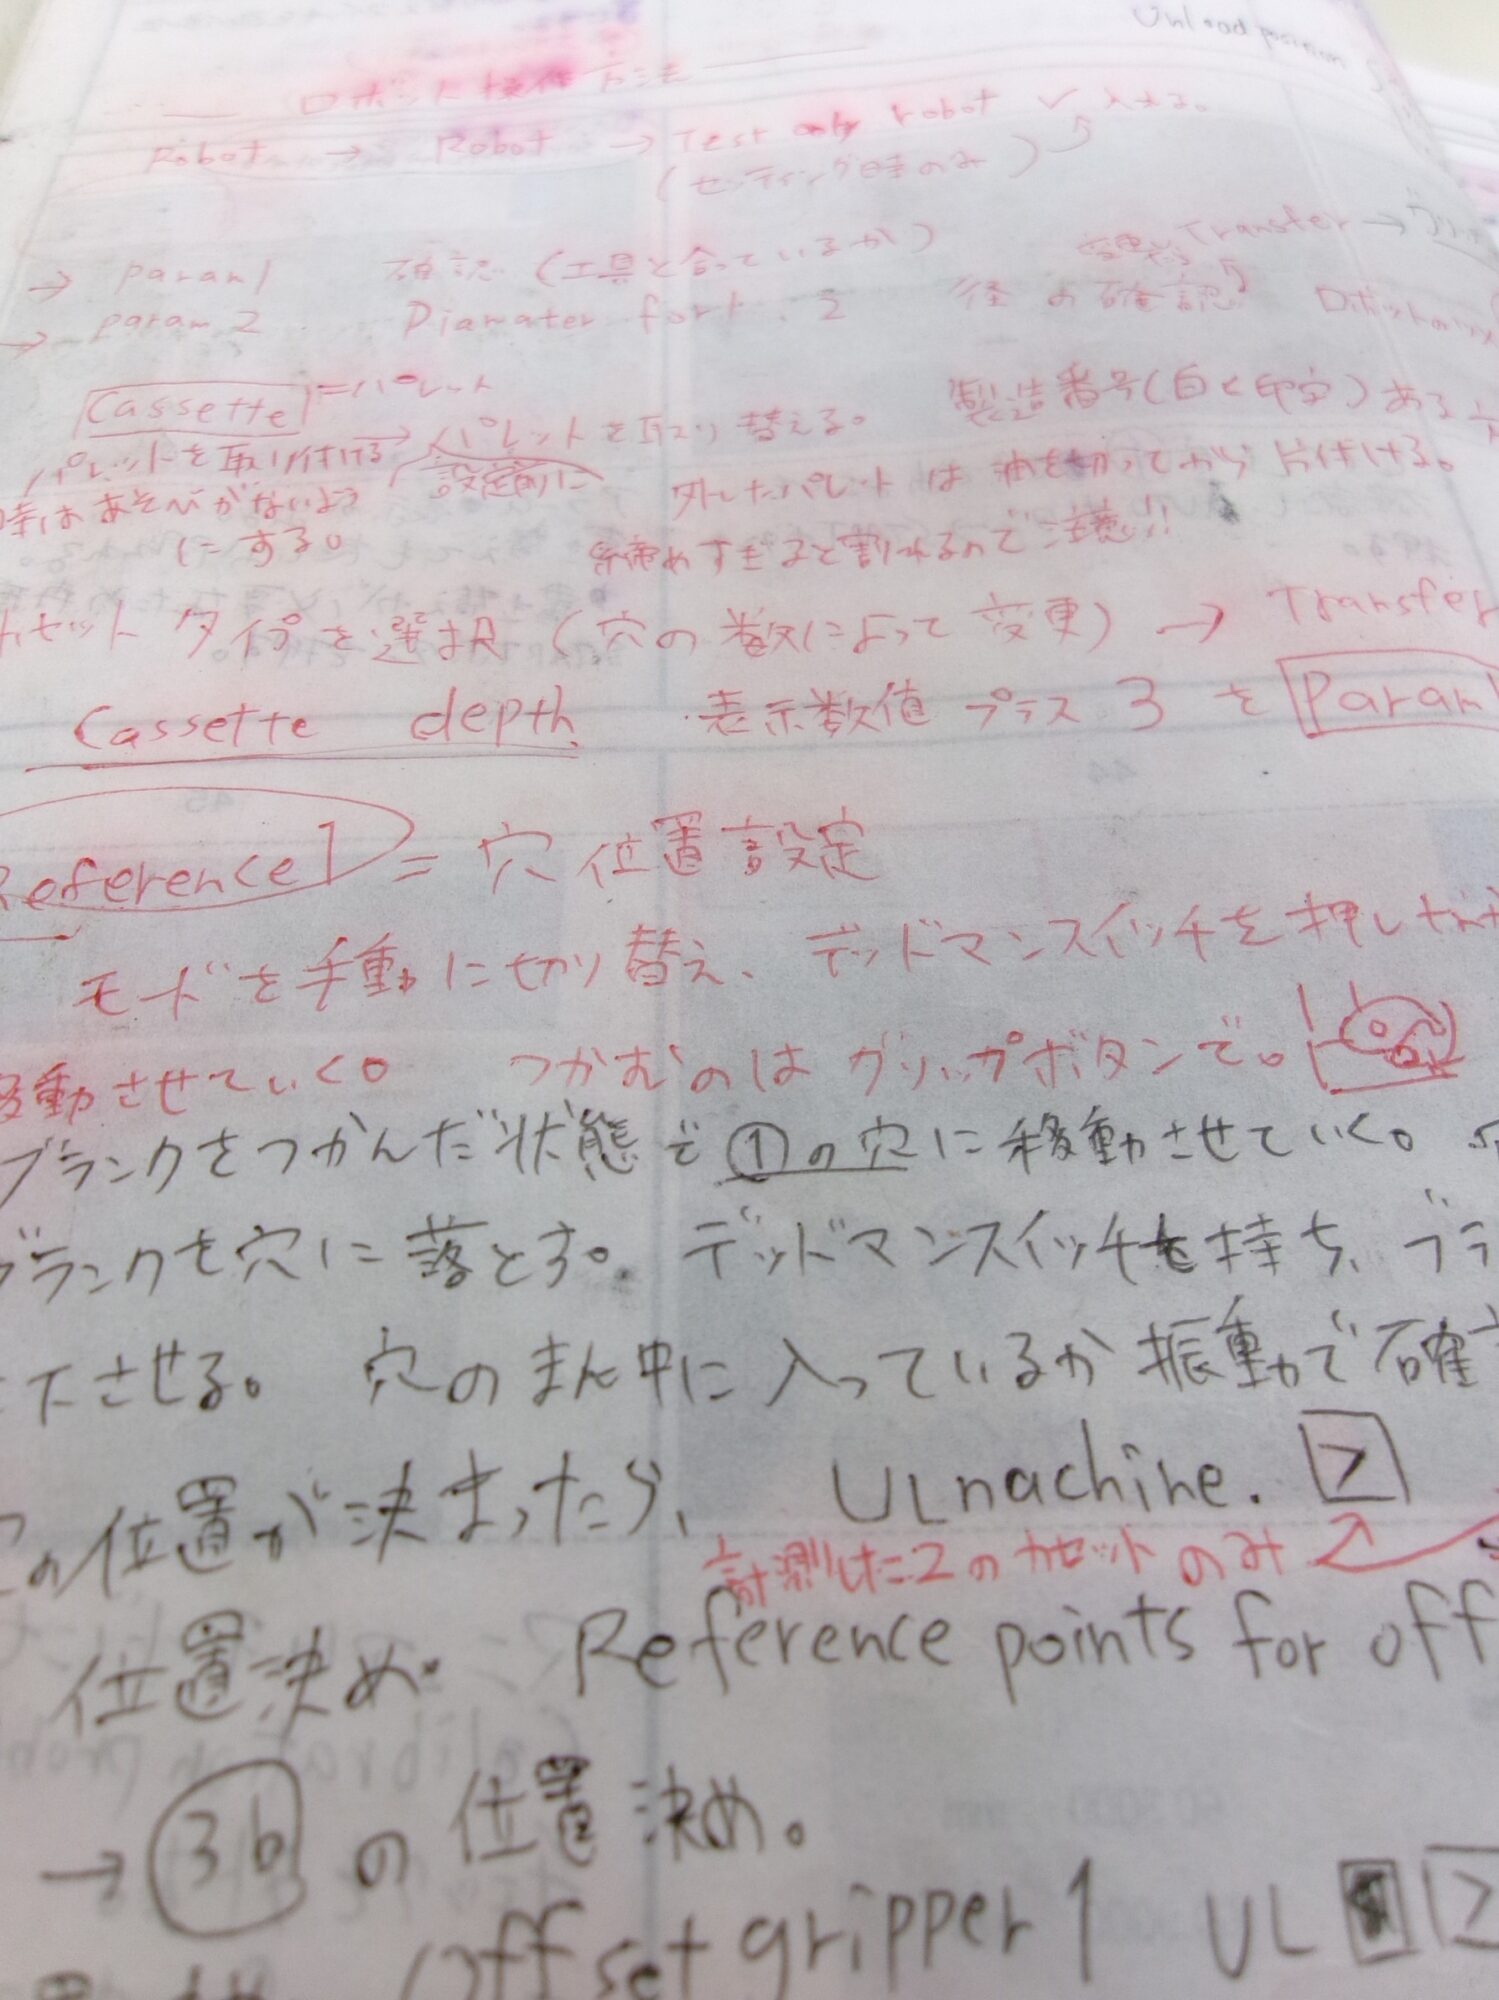 Unload position
ロボット操作方法
Robot → Robot → Test only robot ✓ 入れる。
(セッティング時のみ)
→ param1 確認 (工具と合っているか) 変更なら Transfer →
→ param 2 Diamater for 1.2 径の確認 ロボットの
Cassette =パレット
パレットを取り付ける → パレットを取り替える。 製造番号(白く印字)ある
設定前に
時はあそびがないよう 外したパレットは油を切ってから片付ける。
にする。 締めすぎると割れるので注意!!
カセットタイプを選択 (穴の数によって変更) → Transfer
Cassette depth 表示数値プラス3を Param
Reference1 = 穴位置設定
モードを手動に切り替え、デッドマンスイッチを押しながら
移動させていく。 つかむのはグリップボタンで。
ブランクをつかんだ状態で①の穴に移動させていく。
ブランクを穴に落とす。デッドマンスイッチを持ち、ブラ
下させる。 穴のまん中に入っているか振動で確
の位置が決まったら、 ULmachine. >
計測した2のカセットのみ
位置決め。 Reference points for off
→ 3b の位置決め。
Offset gripper 1 UL >